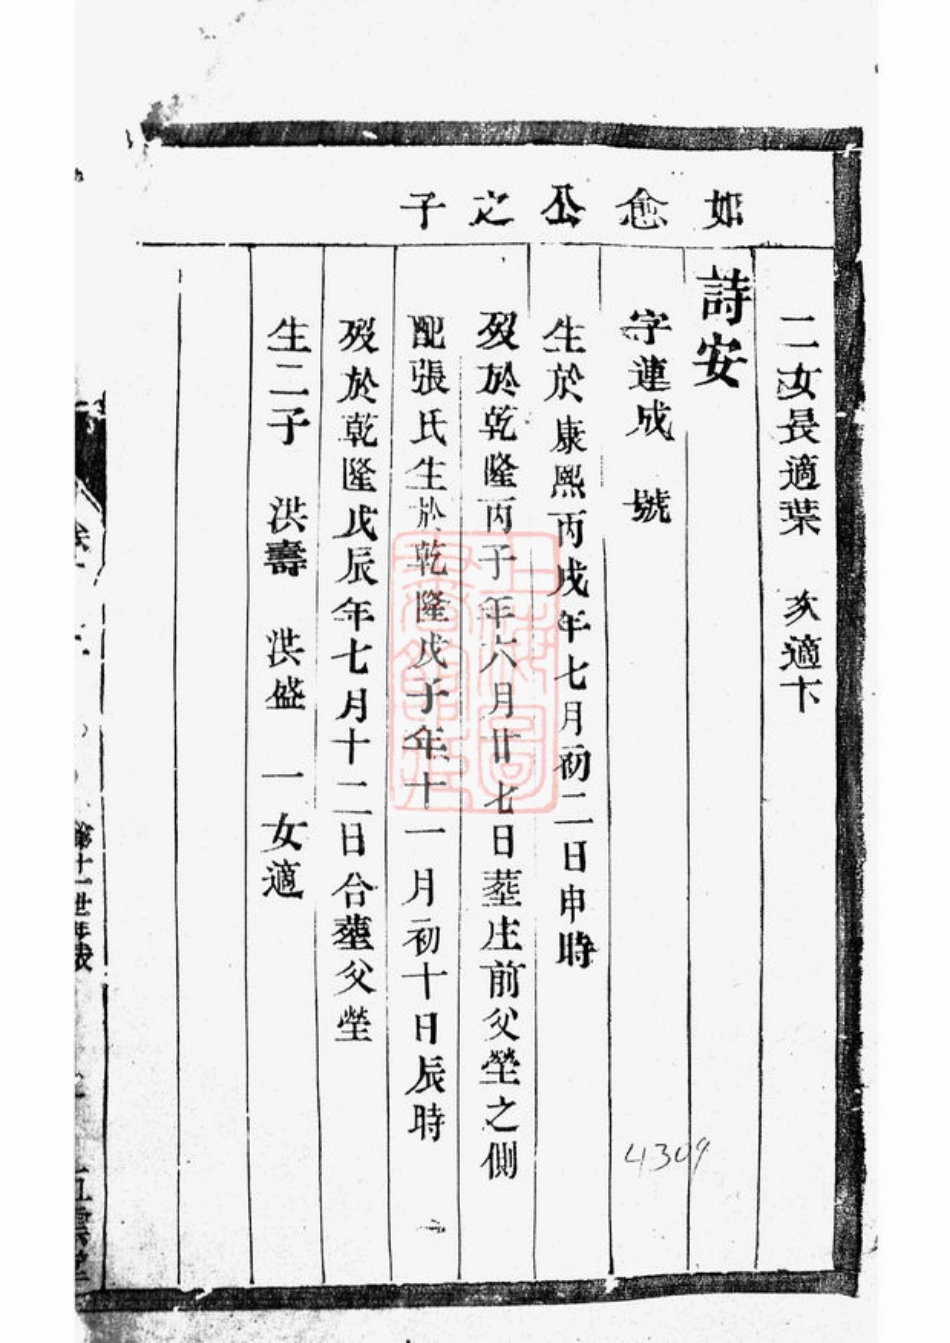 如愈公之子
二女長適葉　次適卞
詩安
字連成　號
生於康熙丙戌年七月初二日申時
歿於乾隆丙子年六月廿七日塟庄前父塋之側
配張氏生於乾隆戊子年十一月初十日辰時
歿於乾隆戊辰年七月十二日合塟父塋
生二子　洪壽　洪盛　一女適
第十一世年
雲
4309